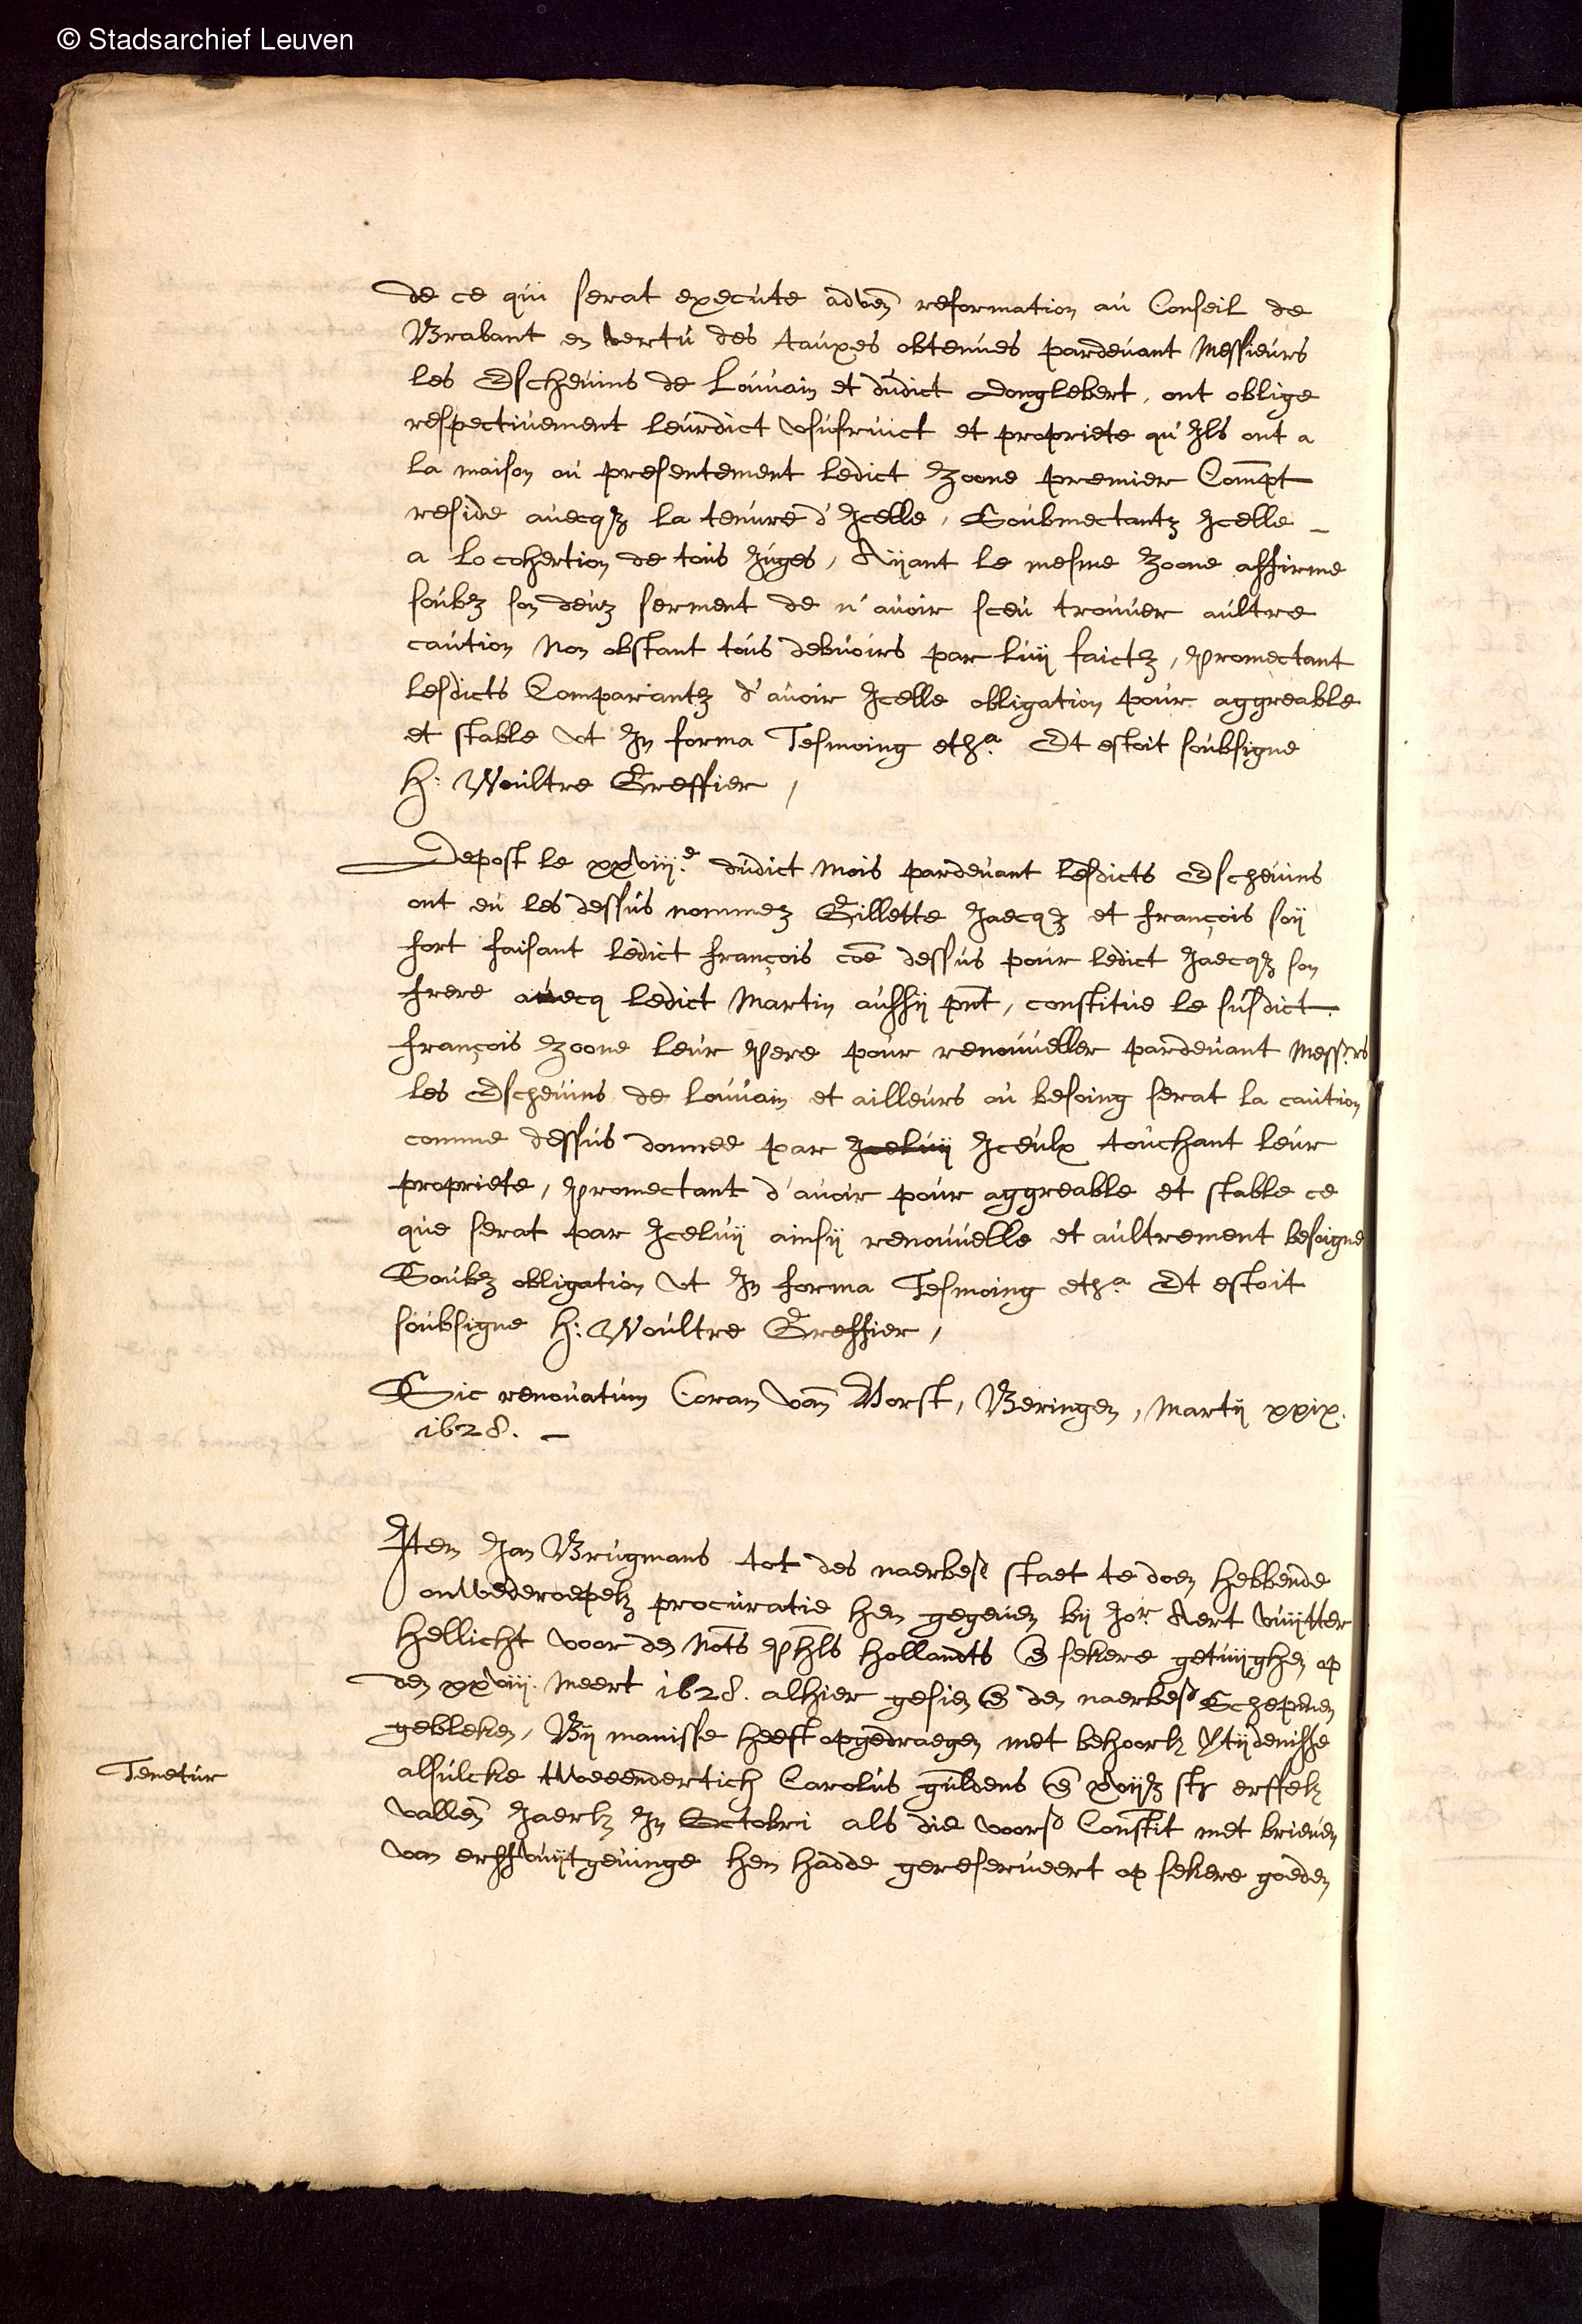 © Stadsarchief Leuven
de ce qui serat execute adven̄ reformation au Conseil de
Brabant en vertu des tauxes obtenues pardevant Messieurs
les Eschevins de Louvain et dudict Donglebert, ont oblige
respectivement leurdict usufruict et propriete qu'Ils ont a
la maison ou presentement ledict Zoone premier Comp̄t
reside avecqz la tenure d'Icelle, Soubmectantz Icelle -
a lo cohertion de tous Juges, Aijant le mesme Zoone affirme
soubz son deuz serment de n'avoir sceu trouver aultre
caution Non obstant tous debuoirs par luij faictz, Promectant
lesdicts Comparantz d'avoir Icelle obligation pour aggreable
et stable ut In forma Tesmoing eth.a Et estoit soubsigne
H: Woultre Greffier,
Depost le xxviij.e dudict Mois pardevant lesdicts Eschevins
ont eu les dessus nommez Gillette Jaecqz et françois soij
fort faisant ledict françois cōe dessus pour ledict Jaecqz son
frere avecq ledict Martin aussij pn̄t, constitue le susdict
françois Zoone leur Pere pour renouveller pardevant Mess.rs
les Eschevins de Louvain et ailleurs ou besoing serat la caution
comme dessus donnee par Iceluij Iceulx touchant leur
propriete, Promectant d'avoir pour aggreable et stable ce
que serat par Iceluij ainsij renouvelle et aultrement besoigne
Soubz obligation ut In forma Tesmoing eth.a Et estoit
soubsigne H: Woultre Greffier,
Sic renovatum Coram van Vorst, Beringen, Martij xxix.
1628. -
Item Jan Brugmans tot des naerbesc staet te doen hebbende
onwederoepelz procuratie hem gegeven bij Jor Aert vuijtter
Hellicht voor den Not̄s Ph̄ls Hollandts en̄ sekere getuijghen op
den xxviij. Meert 1628. alhier gesien en̄ den naerbesc Schepenen
gebleken, Bij manisse heeft opgedraegen met behoorlz vtijdenisse
Tenetur
alsulcke tweeendertich Carolus guldens en̄ xvijz str erffelz
vallen̄ Jaerlz In Octobri als die voorsc Constit met brieven
van erffvuijtgevinge hem hadde gereserveert op sekere goeden